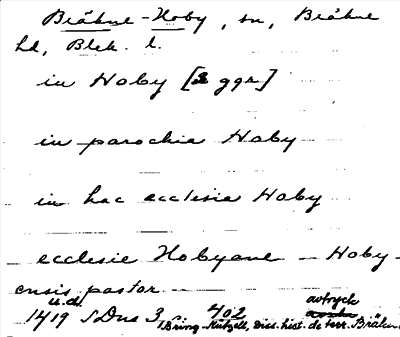 Bräkne-Hoby, sn, Bräkne
hd, Blek. l.
in Hoby [2 ggr]
in parochia Hoby
in hac ecclesia Hoby
ecclesie Hobyane - Hoby-
ensis pastor
1419 u.d. SDns 3, 402 avtryck
Bring-Kützell, Diss. hist. de terr. Bräkne